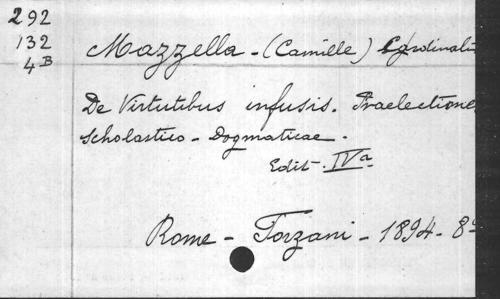 292
132
4B
Mazzella - (Camille) Cardinali
De Virtutibus infusis. Praelectione
Scholastico - Dogmaticae.
Edit. IVa
Rome - Forzani - 1894 - 8º